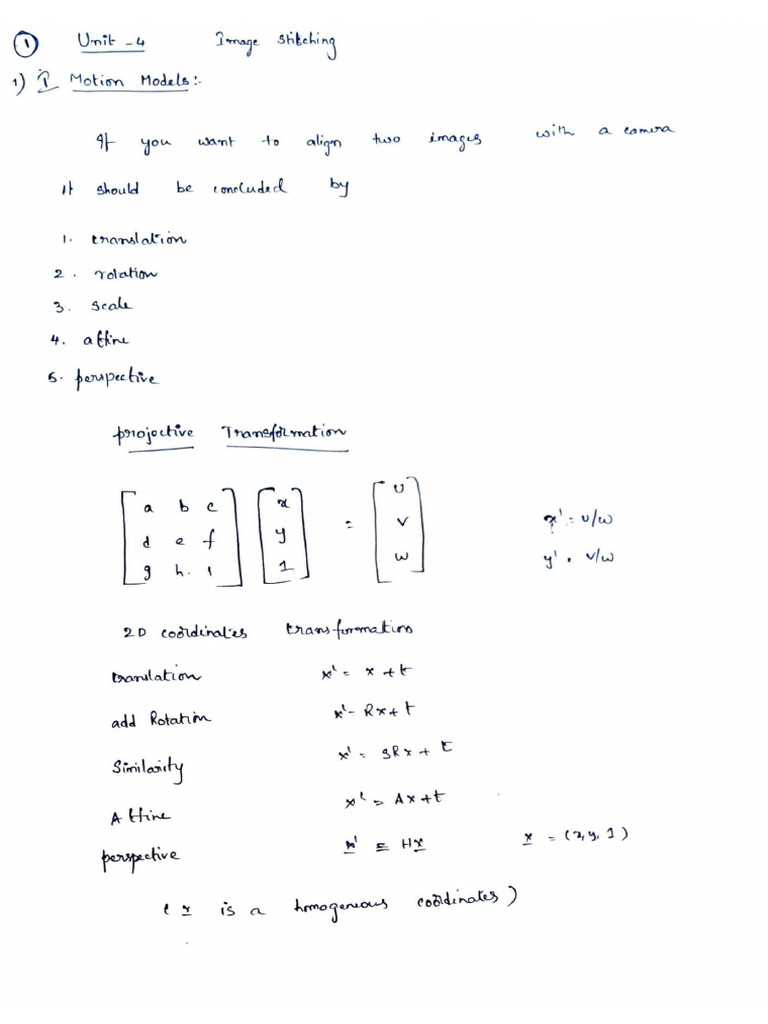 1 Unit - 4 Image Stitching
1) I Motion Models:-
If you want to align two images with a camera
It should be concluded by
1. translation
2. rotation
3. scale
4. affine
5. perspective
projective Transformation
[a b c] [x] = [u]
[d e f] [y] [v] x' = u/w
[g h. 1] [1] [w] y' = v/w
2D coordinates transformation
translation x' = x + t
add Rotation x' = Rx + t
Similarity x' = SRx + t
Affine x' = Ax + t
perspective x' ≡ Hx x = (x, y, 1)
(x is a homogeneous coordinates)